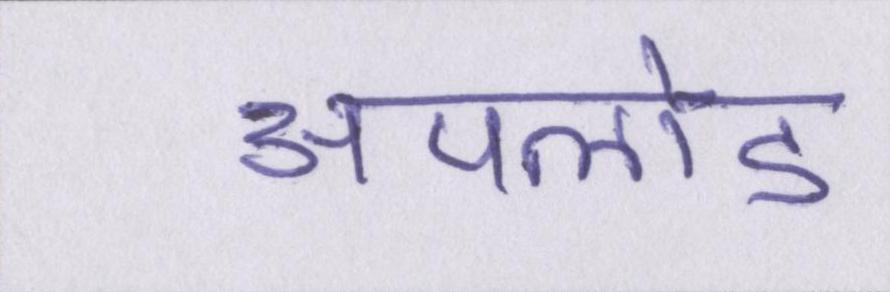 अपलोड